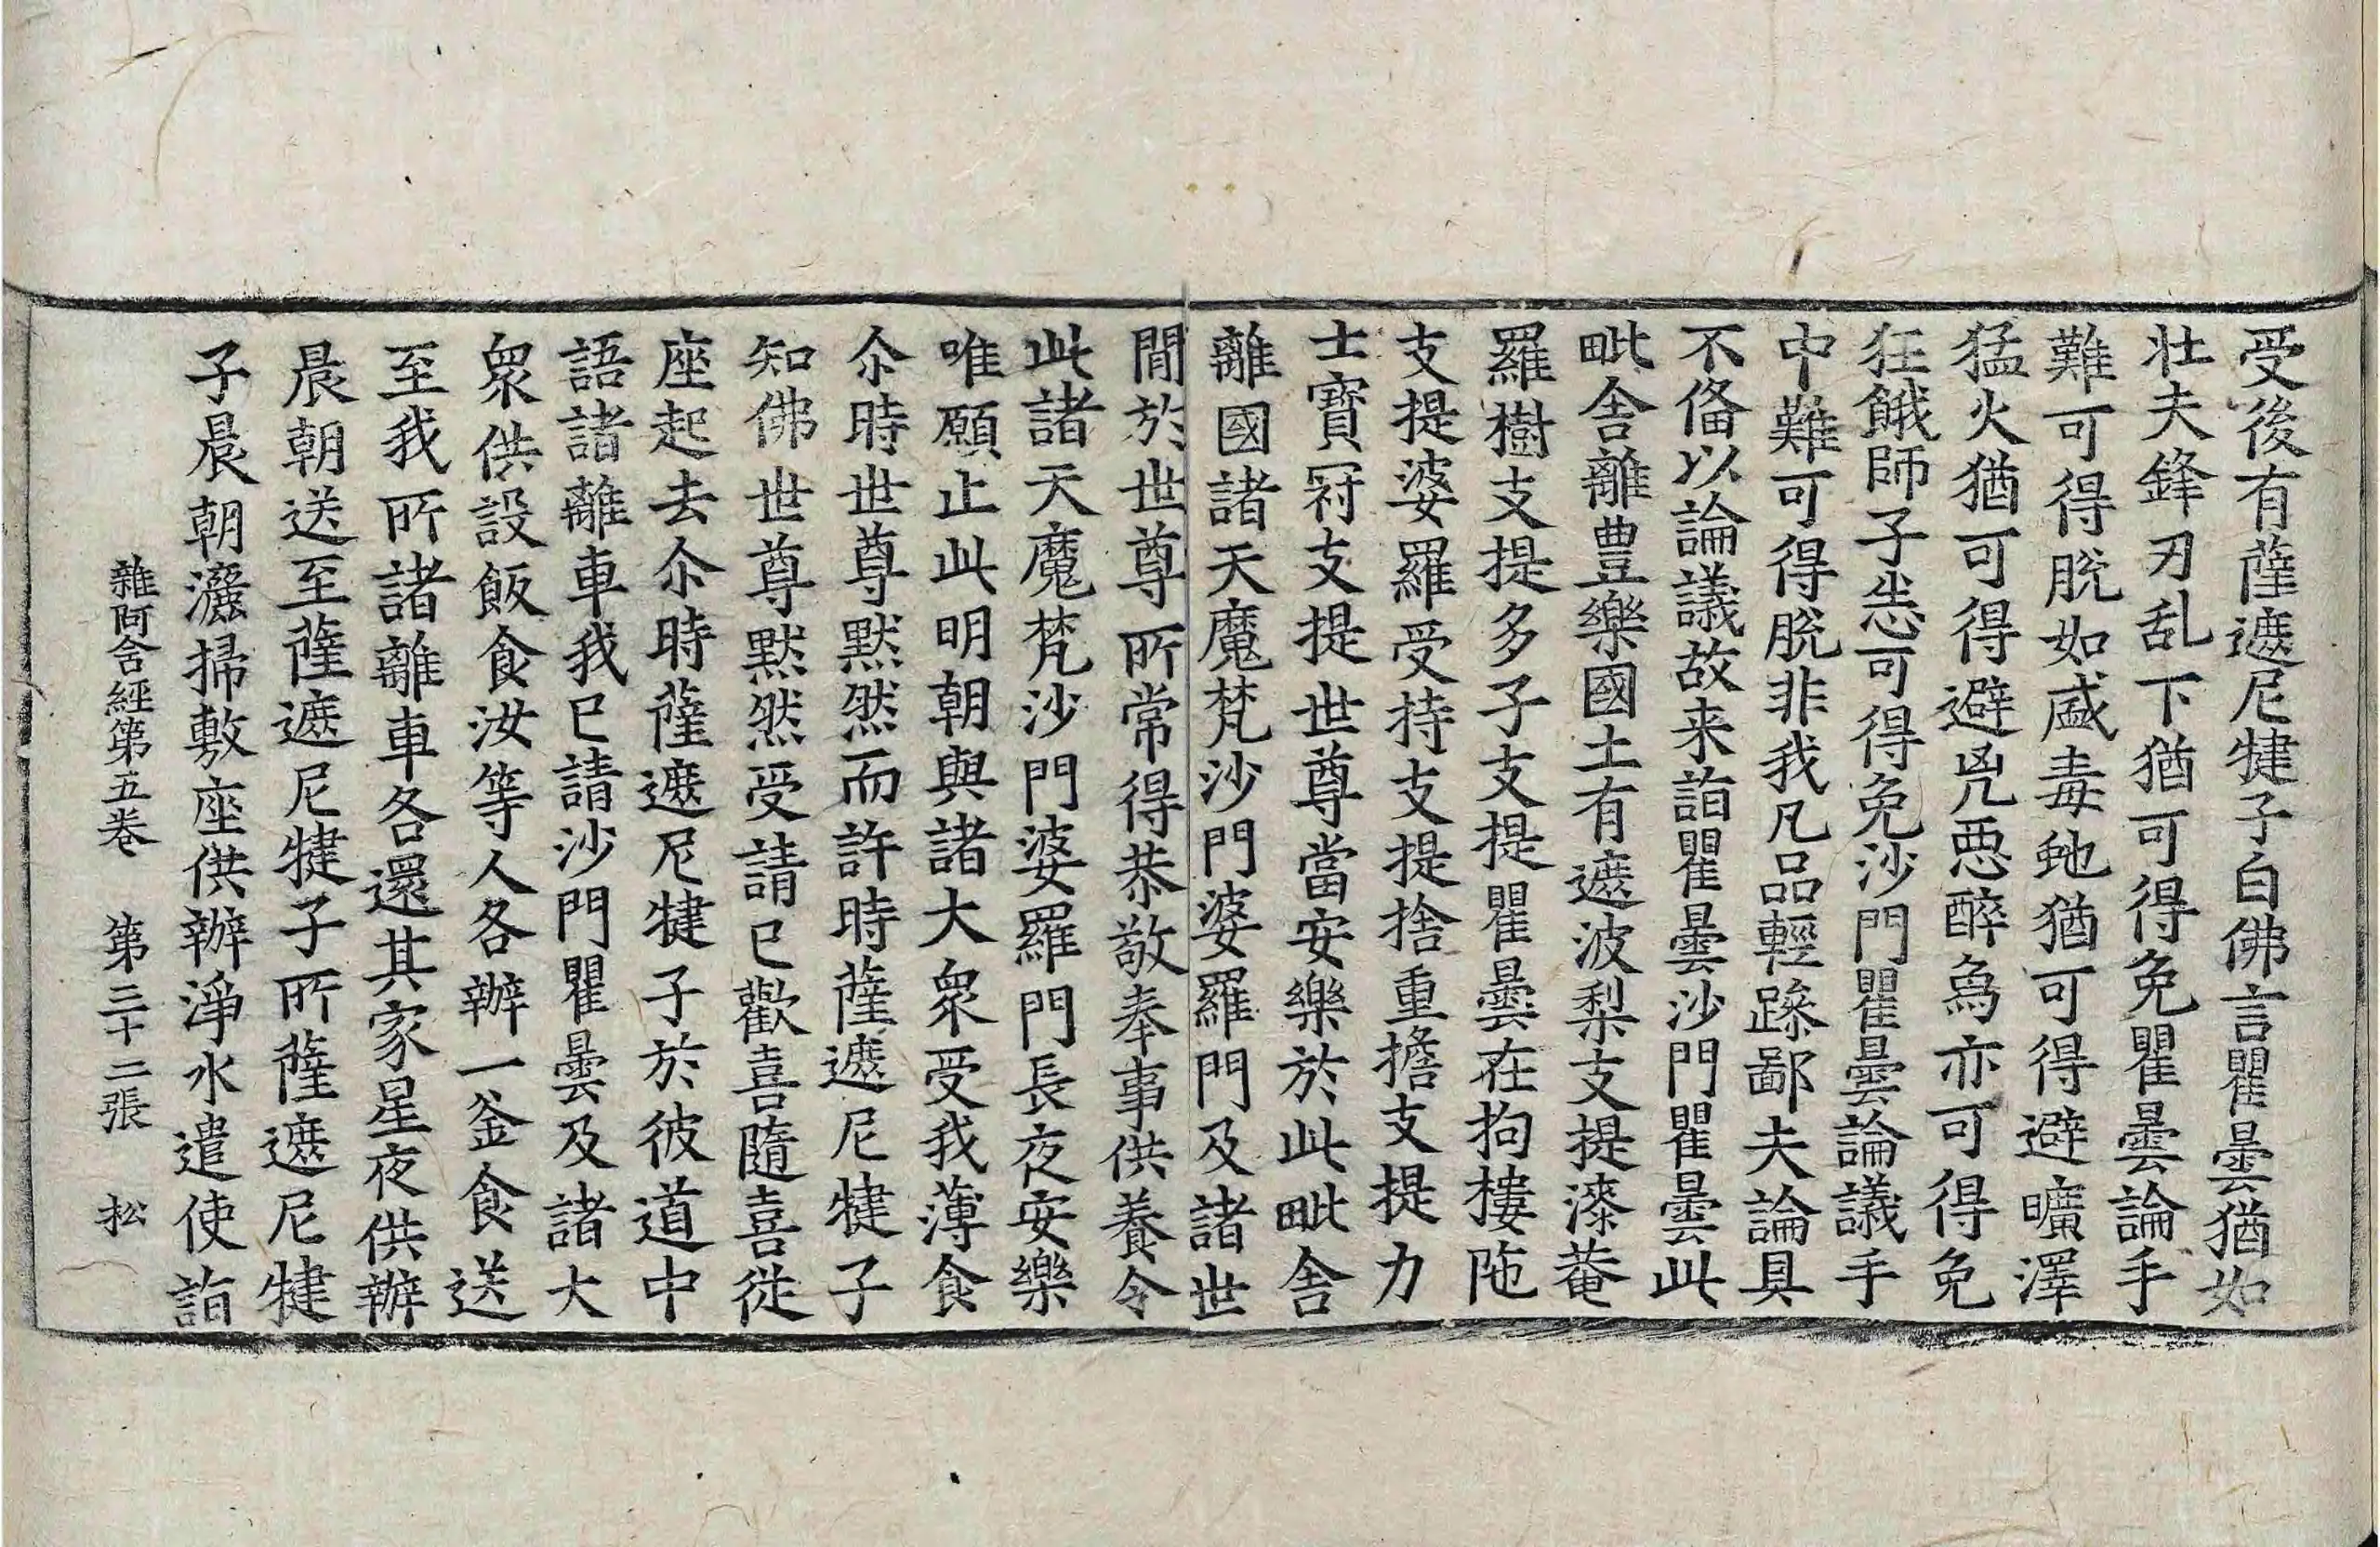 受後有薩遮尼犍子白佛言瞿曇猶如
壮夫鋒刃乱下猶可得免瞿曇論手
難可得脫如盛毒虵猶可得避曠澤
猛火猶可得避兇惡醉象亦可得免
狂餓師子悉可得免沙門瞿曇論議手
中難可得脫非我凡品輕躁鄙夫論具
不俻以論議故来詣瞿曇沙門瞿曇此
毗舍離豊樂國土有遮波梨支提漆菴
羅樹支提多子支提瞿曇在拘樓陁
支提婆羅受持支提捨重擔支提力
士寶冠支提世尊當安樂於此毗舍
離國諸天魔梵沙門婆羅門及諸世
閒於世尊所常得恭敬奉事供養令
此諸天魔梵沙門婆羅門長夜安樂
唯願止此明朝與諸大衆受我薄食
尒時世尊默然而許時薩遮尼犍子
知佛世尊默然受請已歡喜隨喜從
座起去尒時薩遮尼犍子於彼道中
語諸離車我已請沙門瞿曇及諸大
衆供設飯食汝等人各辦一釜食送
至我所諸離車各還其家星夜供辦
晨朝送至薩遮尼犍子所薩遮尼犍
子晨朝灑掃敷座供辦淨水遣使詣
雜阿含經第五卷 第三十二張 松